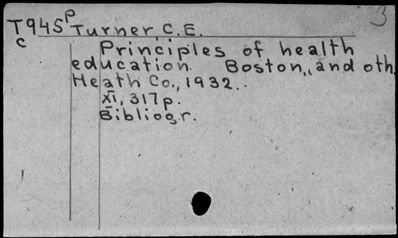 3
T945p Turner, C.E.
c
Principles of health
education. Boston, and oth.
Heath Co., 1932.
XI, 317 p.
Bibliogr.